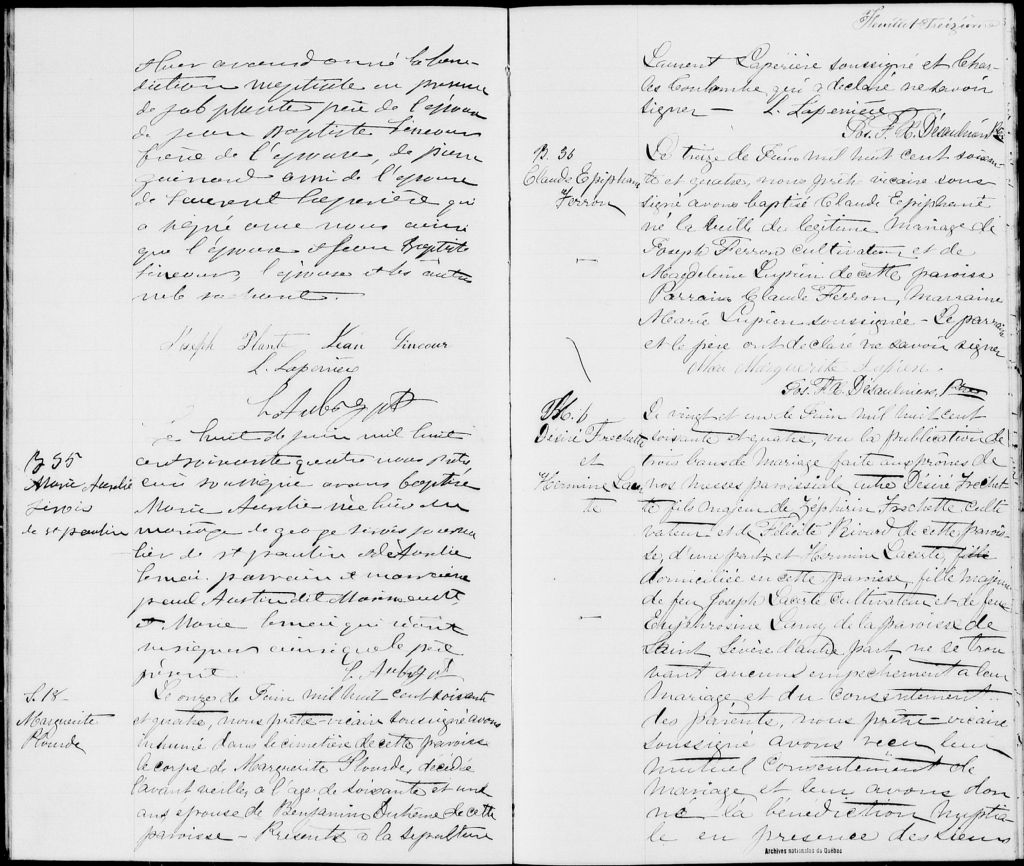 et leur avons donné la béné-
diction nuptiale en présence
de job plante père de l'époux
de jean Baptiste Sincour
frère de l'épouse, de pierre
ami de l'épouse
de Laurent Laperière qui
a signé avec nous ainsi
que l'époux et Jean Baptiste
Sincour, l'épouse et les autres
ne le sachant.
Joseph Plante Jean Sincour
L. Laperrière
B 55
Marie Aurélie
de st paulin
Le huit de juin mil huit
cent soixante quatre nous prêtre
curé soussigné avons baptisé
Marie Aurélie née hier du
mariage de george
de st paulin et de Aurélie
Lemai. parrain et marraine
paul Austin dit
et Marie Lemai qui n'ont
signer ainsi que le père
présent.
S. 18
Marguerite
Plourde
Le onze de Juin mil huit cent soixante
et quatre, nous prêtre-vicaire soussigné avons
inhumé dans le cimetière de cette paroisse
le corps de Marguerite Plourde, décédée
l'avant veille, à l'age de soixante et un
ans épouse de Benjamin de cette
paroisse – Présents à la sépulture
Feuillet treizième
Laurent Laperière soussigné et Char-
les qui a déclaré ne savoir
signer — L. Laperrière
Jos. F. X. Désaulniers Ptre
B. 56
Claude Epiphane
Ferron
Le treize de Juin mil huit cent soixan-
te et quatre, nous prêtre vicaire sous-
signé avons baptisé Claude Epiphane
né la veille du légitime mariage de
Joseph Ferron cultivateur et de
Magdeleine Lupien de cette paroisse
Parrain Claude Ferron, marraine
Marie Lupien soussignée – Le parrain
et le père ont déclaré ne savoir signer
Marguerite Lupien
Jos. F. X. Désaulniers, Ptre
M. 6
Désiré Frechette
et
Hermine Lacer-
te
Le vingt et un de Juin mil huit cent
soixante et quatre, vu la publication de
trois bans de mariage faite aux prônes de
nos messes paroissiale entre Désiré Frechet-
te fils majeur de Zéphirin Frechette culti-
vateur et de Félicité Rivard de cette parois-
se, d'une part, et Hermin Lacerte, fille
domiciliée en cette paroisse, fille majeure
de feu Joseph Lacerte cultivateur et de feue
Lamy de la paroisse de
Saint Sévère d'autre part ne se trou
vant aucuns empechement à leur
mariage et du consentement
des parents, nous prêtre-vicaire
soussigné avons reçu leur
mutuel consentement de
mariage et leur avons don
né la bénédiction nuptia
le en presence des sieurs
Archives nationales du Québec